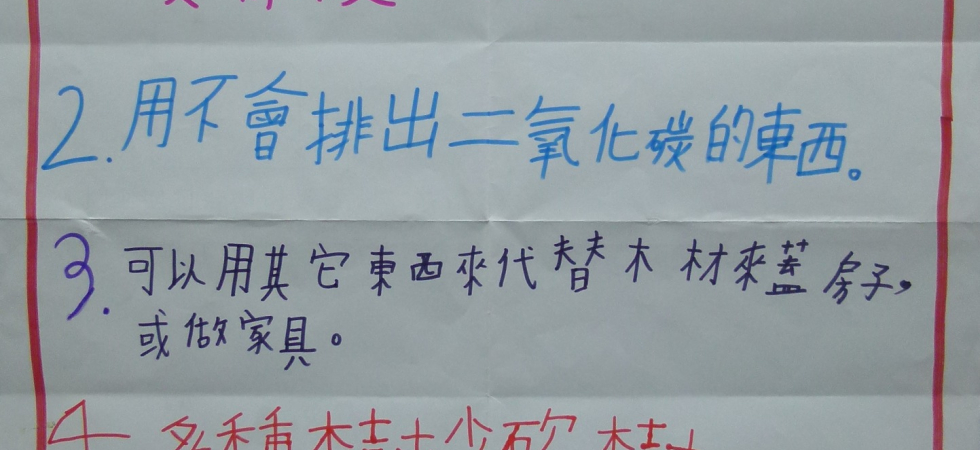 2.用不會排出二氧化碳的東西。
3.可以用其它東西來代替木材來蓋房子,
或做家具。
4 多種樹少砍樹